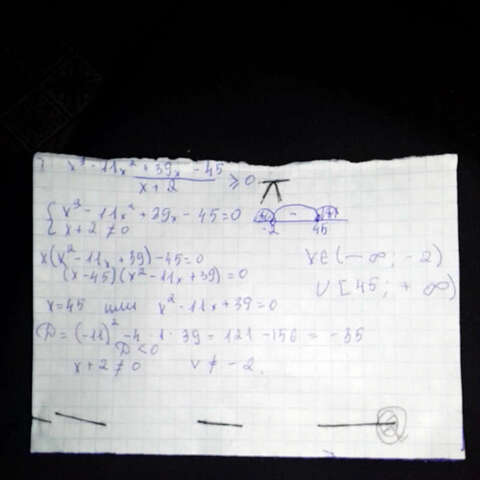 x³ - 11x² + 39x - 45
x + 2
≥ 0
{ x³ - 11x² + 39x - 45 = 0
x + 2 ≠ 0
+ - +
-2 45
x(x² - 11x + 39) - 45 = 0
(x - 45)(x² - 11x + 39) = 0
x ∈ (-∞; -2)
∪ [45; +∞)
x = 45 или x² - 11x + 39 = 0
D = (-11)² - 4 · 1 · 39 = 121 - 156 = -35
D < 0
x + 2 ≠ 0 x ≠ -2.